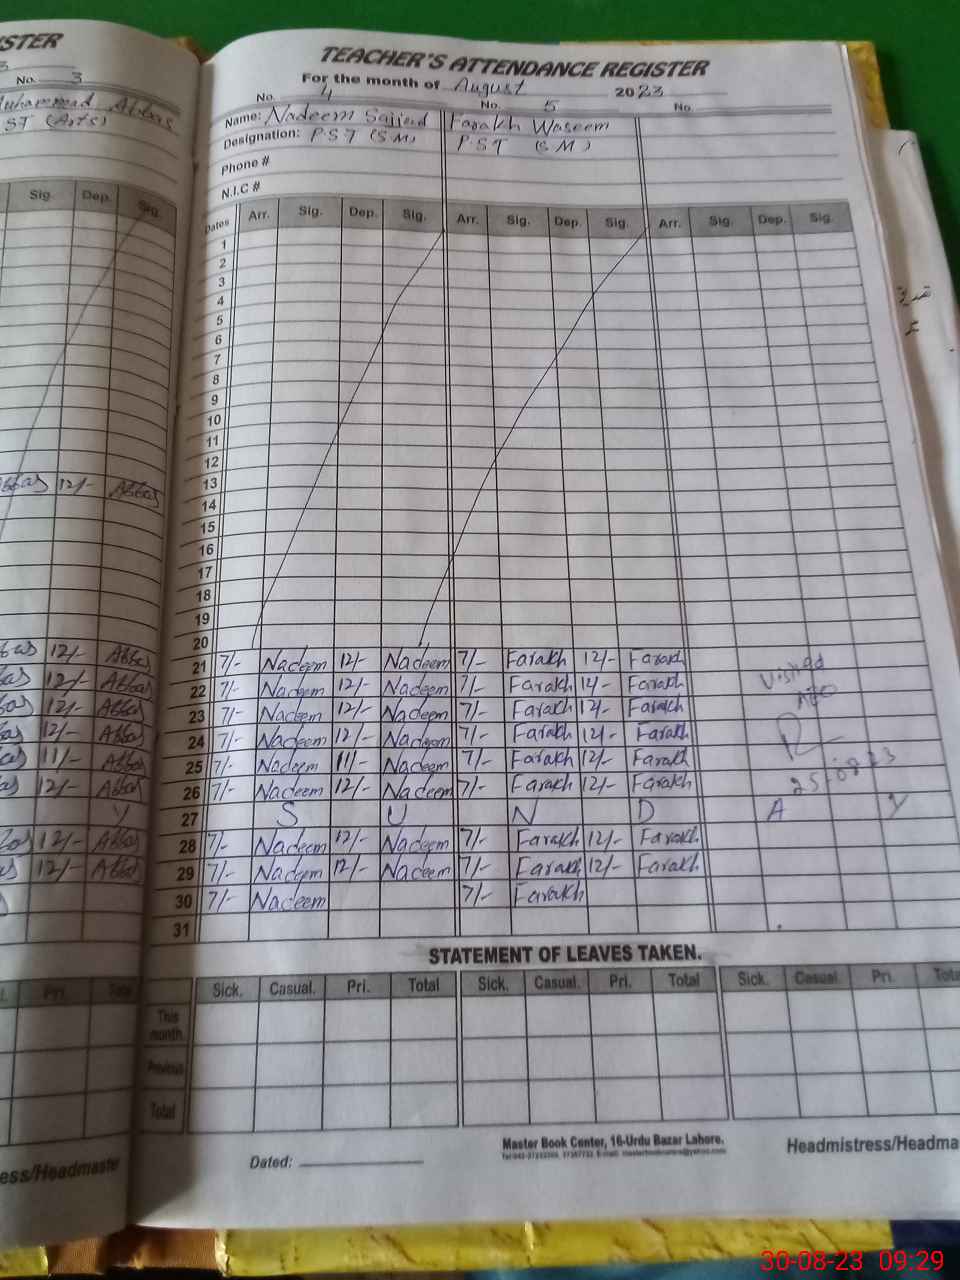 STER
No. 3
Muhammad Abbas
ST (Arts)
Sig. Dep. Sig.
Abbas 12/- Abbas
12/- Abbas
12/- Abbas
12/- Abbas
12/- Abbas
11/- Abbas
12/- Abbas
Y
12/- Abbas
12/- Abbas
Pri. Total
ess/Headmaster
TEACHER'S ATTENDANCE REGISTER
For the month of August 2023
No. 4 No. 5 No.
Name: Nadeem Sajjad Farakh Waseem
Designation: P.S.T (SM) P.S.T (S M)
Phone #
N.I.C #
Dates Arr. Sig. Dep. Sig. Arr. Sig. Dep. Sig. Arr. Sig. Dep. Sig.
1
2
3
4
5
6
7
8
9
10
11
12
13
14
15
16
17
18
19
20
21 7/- Nadeem 12/- Nadeem 7/- Farakh 12/- Farakh
22 7/- Nadeem 12/- Nadeem 7/- Farakh 14/- Farakh Visited
23 7/- Nadeem 12/- Nadeem 7/- Farakh 12/- Farakh AEO
24 7/- Nadeem 12/- Nadeem 7/- Farakh 12/- Farakh
25 7/- Nadeem 11/- Nadeem 7/- Farakh 12/- Farakh
26 7/- Nadeem 12/- Nadeem 7/- Farakh 12/- Farakh 25-08-23
27 S U N D A Y
28 7/- Nadeem 12/- Nadeem 7/- Farakh 12/- Farakh
29 7/- Nadeem 12/- Nadeem 7/- Farakh 12/- Farakh
30 7/- Nadeem 7/- Farakh
31
STATEMENT OF LEAVES TAKEN.
Sick. Casual. Pri. Total Sick. Casual. Pri. Total Sick. Casual. Pri. Total
This month
Previous
Total
Master Book Center, 16-Urdu Bazar Lahore.
Dated: Headmistress/Headma
30-08-23 09:29